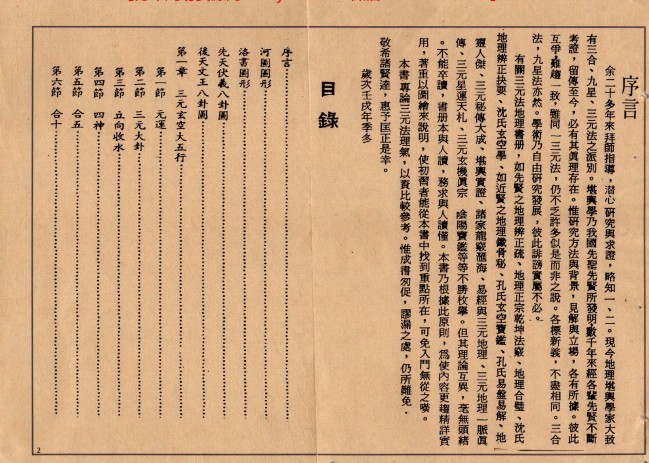 序言
余二十多年來拜師指導，潛心研究與求證，略知一、二。現今地理堪輿學家大致
有三合、九星、三元法之派別。堪輿學乃我國先聖先賢所發明，數千年來經各輩先賢不斷
考證，留傳至今，必有其眞理存在。惟研究方法與背景，見解與立場，各有所據。彼此
互爭難趨一致，雖同一三元法，仍不乏許多似是而非之說。各標新義，不盡相同。三合
法，九星法亦然。學術乃自由硏究發展，彼此誹謗實屬不必。
有關三元法地理書册，如先賢之地理辨正疏、地理正宗乾坤法竅、地理合璧、沈氏
地理辨正抉要、沈氏玄空學、如近賢之地理鐵骨秘、孔氏玄空寶鑑、孔氏易盤易解、地
靈人傑、三元秘傳大成、堪輿實證、諸家龍竅滙海、易經與三元地理、三元地理一脈眞
傳、三元星運天札、三元玄機眞宗　陰陽寶鑑等等不勝枚擧。但其理論互異，毫無頭緒
。不能卒讀，書册本與人讀，務求與人讀懂。本書乃根據此原則，爲使內容更趨精詳實
用，著重以圖繪來說明，使初習者能從本書中找到重點所在，可免入門無從之嘆。
本書專論三元法理氣，以資比較參考。惟成書匆促，膠漏之處，仍所難免，
敬希諸賢達，惠予匡正是幸。
歲次壬戌年季冬
目錄
序言
河圖圖形
洛書圖形
先天伏羲八卦圖
後天文王八卦圖
第一章　三元玄空大五行
第一節　元運
第二節　三元大卦
第三節　立向收水
第四節　四神
第五節　合五
第六節　合十
2